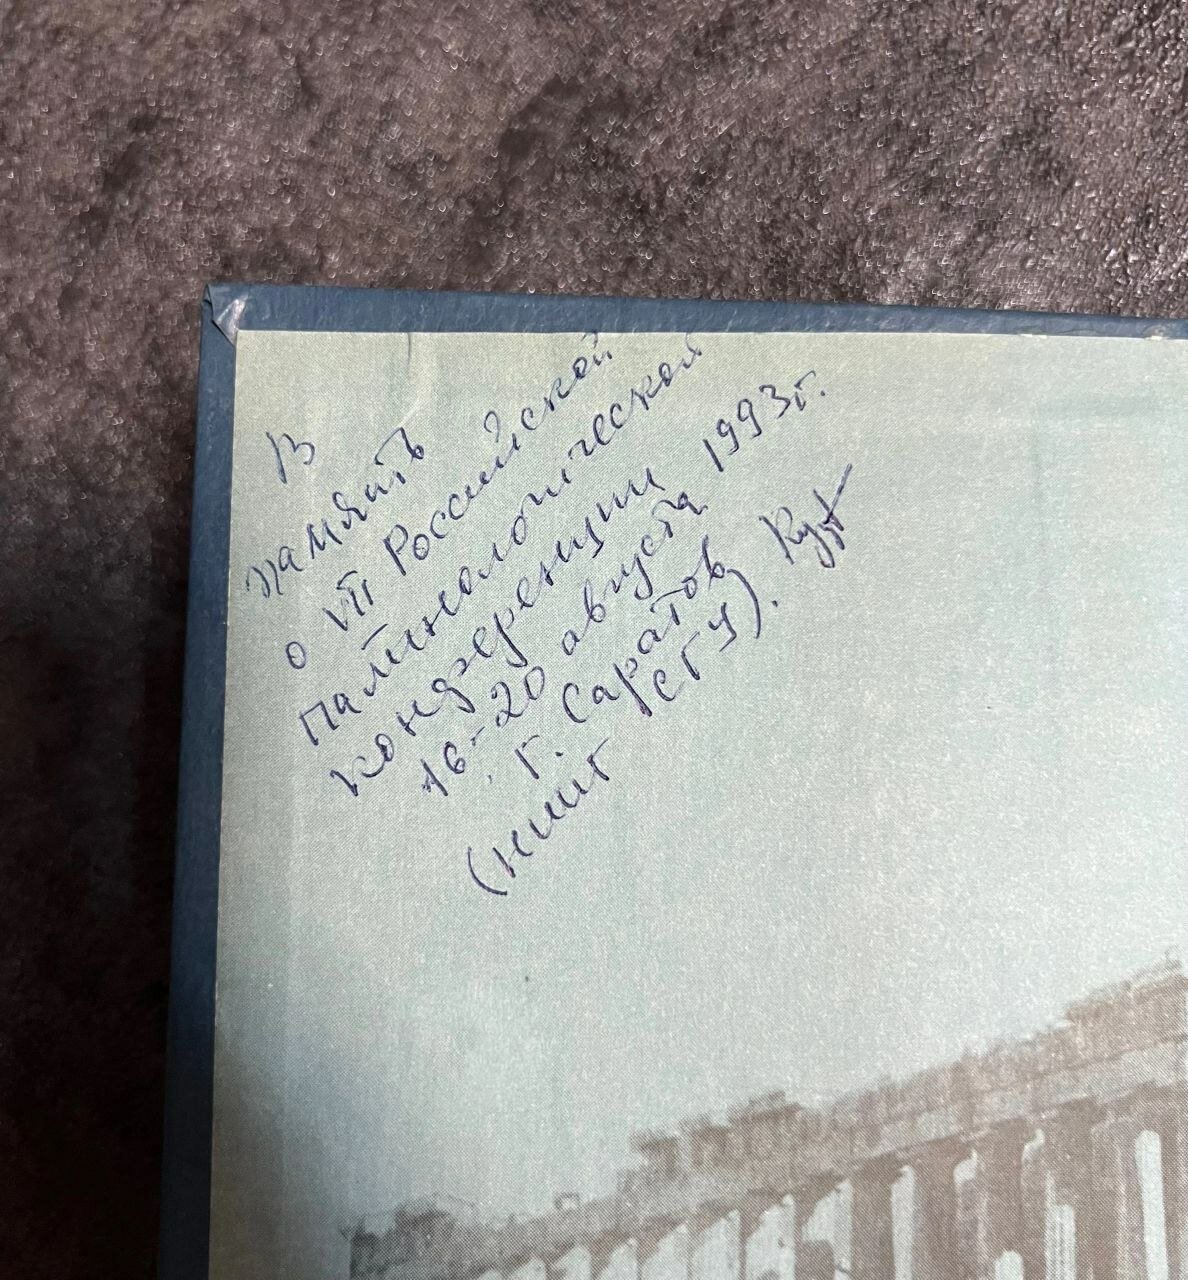 В
память
о VII Российской
палинологической
конференции
16-20 августа 1993г.
г. Саратов,
(НИИГ СГУ).